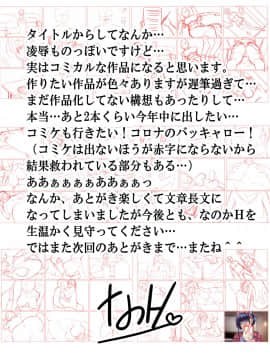 タイトルからしてなんか…
凌辱ものっぽいですけど…
実はコミカルな作品になると思います。
作りたい作品が色々ありますが遅筆過ぎて…
まだ作品化してない構想もあったりして…
本当…あと2本くらい今年中に出したい…
コミケも行きたい！コロナのバッキャロー！
（コミケは出ないほうが赤字にならないから
結果救われている部分もある…）
ああぁぁぁぁああぁぁっ
なんか、あとがき楽しくて文章長文に
なってしまいましたが今後とも、なのかHを
生温かく見守ってください…
ではまた次回のあとがきまで…またね＾＾